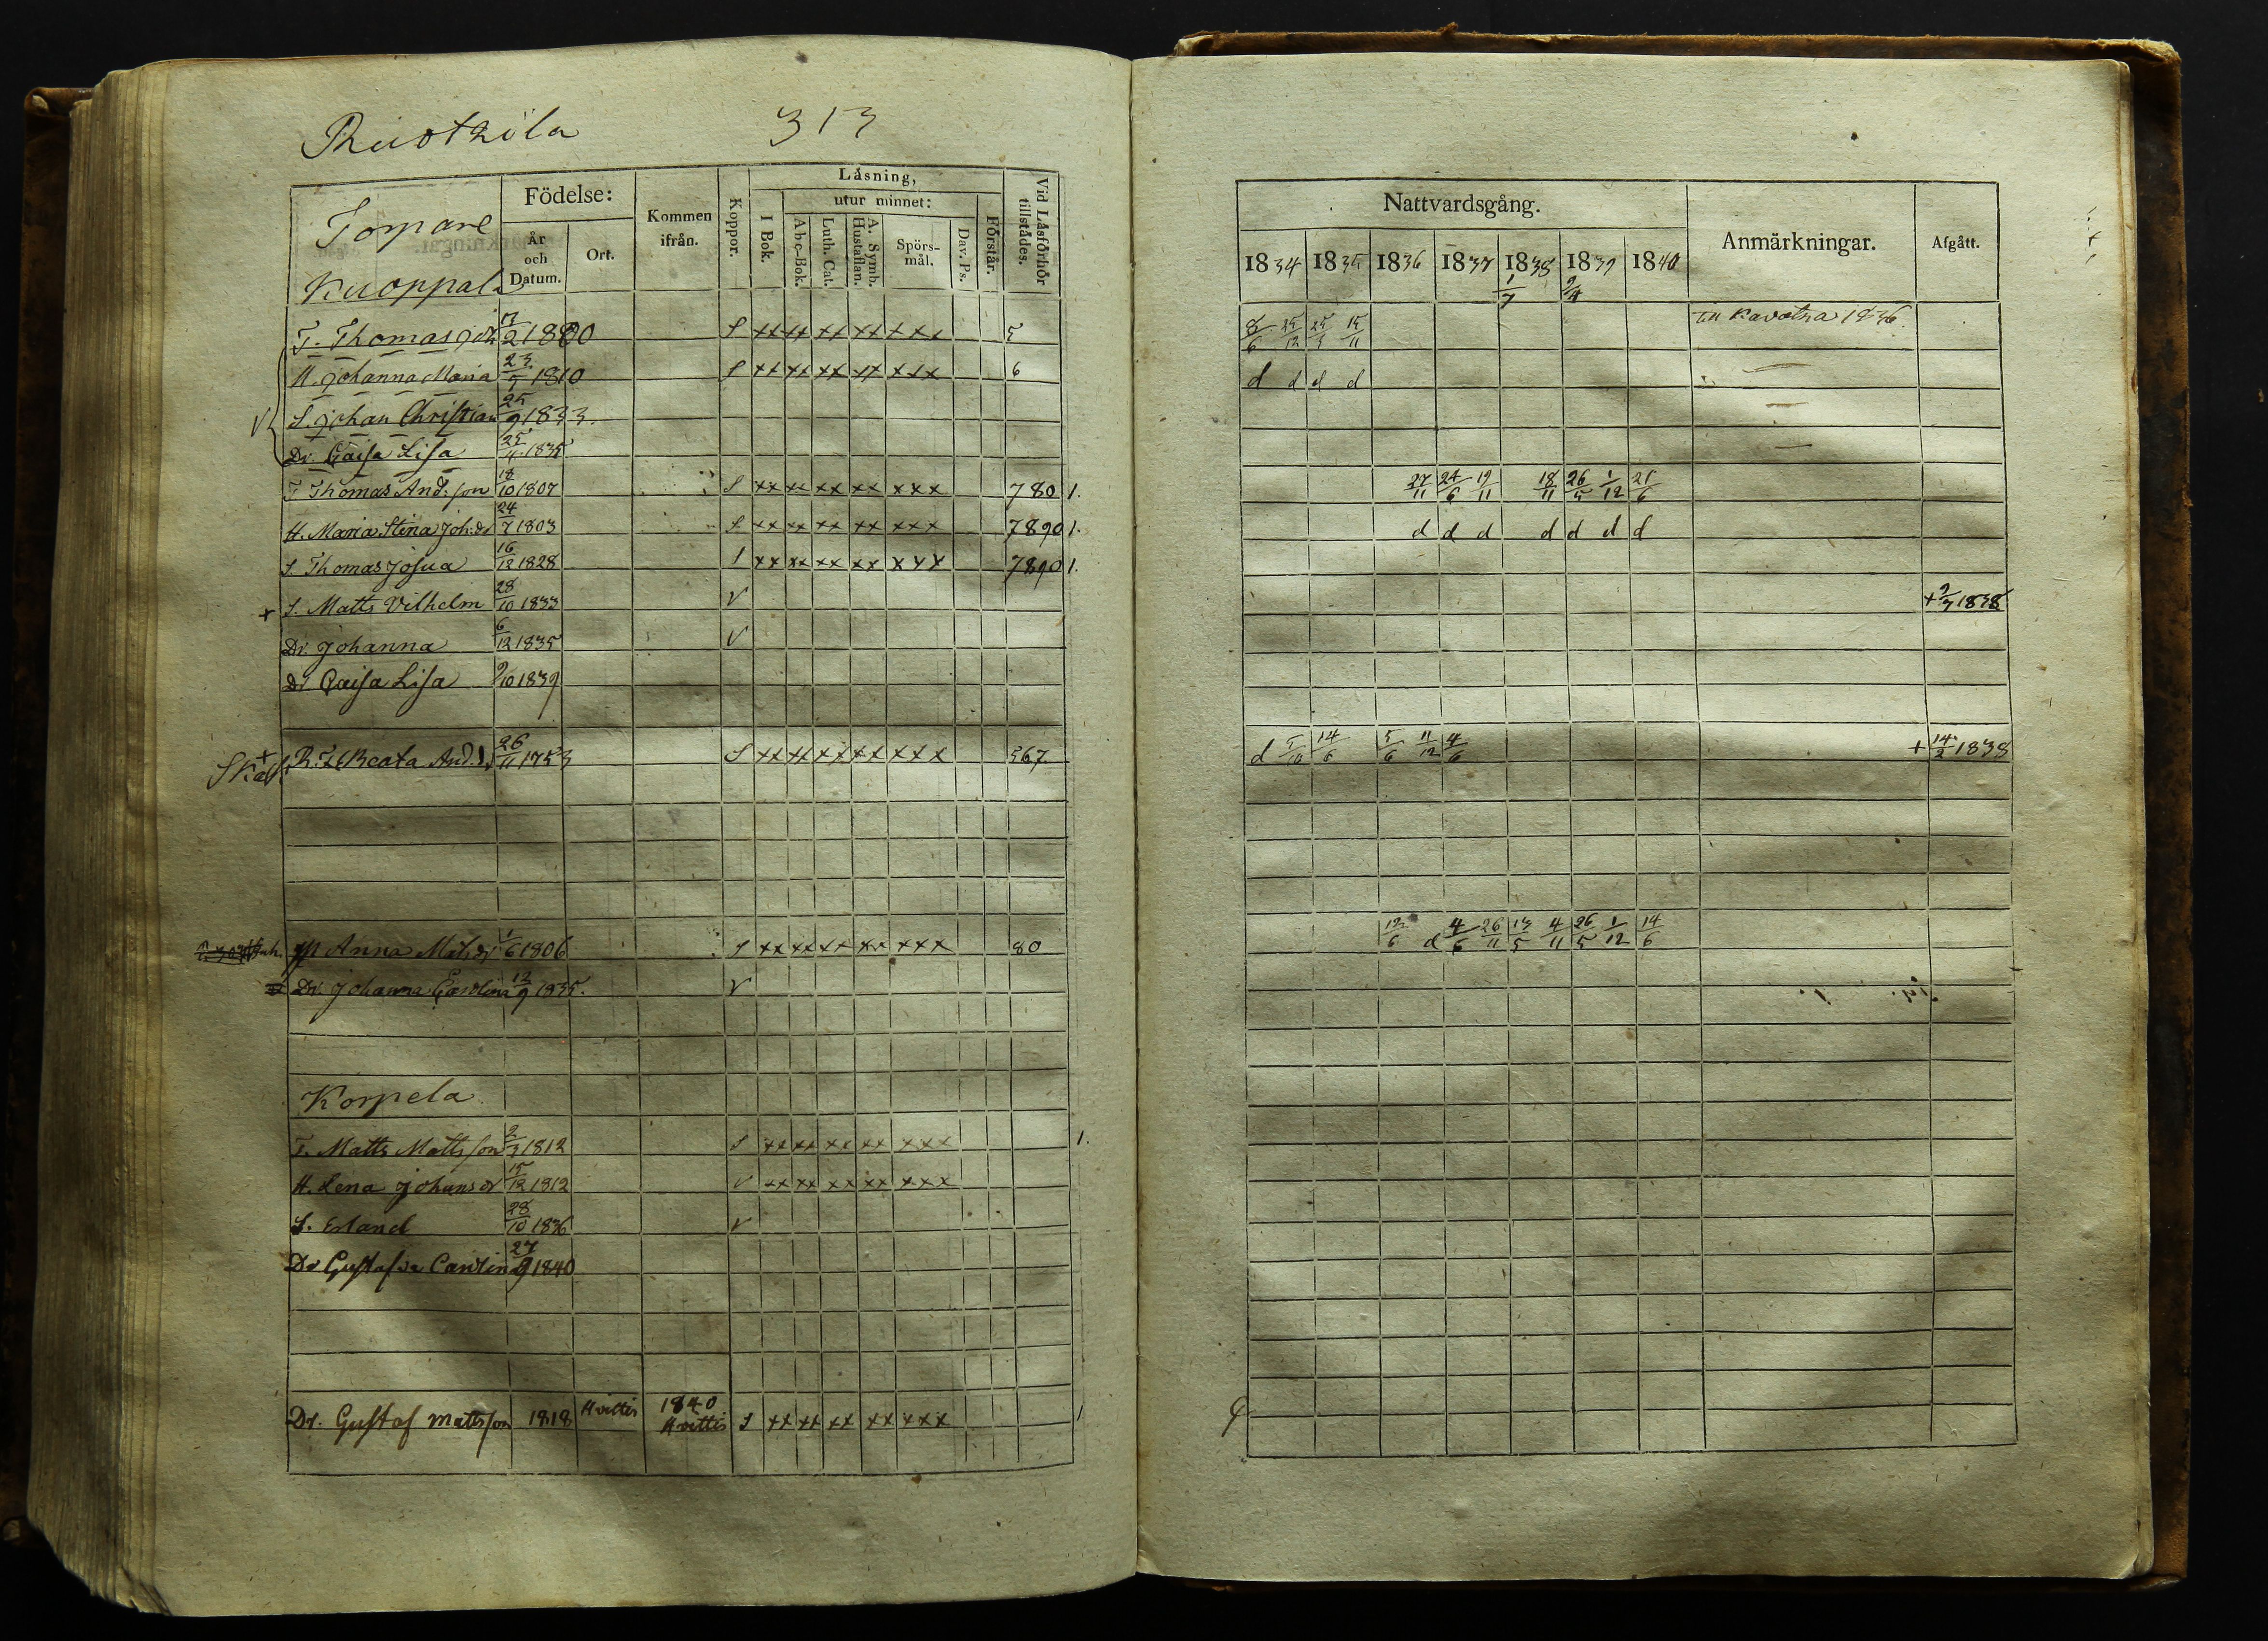 313
Torpare
Kuoppala
Födelse:
År och Datum.
Ort.
Kommen ifrån.
Koppor.
Läsning,
I Bok.
utur minnet:
A b c-Bok.
Luth. Cat.
A. Symb. Hustaflan.
Spörs-mål.
Dav. Ps.
Förstår.
Vid Läsförhör tillstädes.
T. Thomas 17/2 1800 S xx xx xx xx xxx 5
H. Johanna Maria 23/5 1810 S xx xx xx xx xxx 6
S. Johan Christian 25/9 1833.
Dr. Caisa Lisa 25/11 1835
T Thomas And:son 18/10 1807 S xx xx xx xx xxx 780 1.
H. Maria Stina Joh:dr 24/7 1803 S xx xx xx xx xxx 7890 1.
S Thomas Josua 16/12 1828 S xx xx xx xx xxx 7890 1.
+ S. Matts Vilhelm 28/10 1833 V
Dr. Johanna 6/12 1835 V
Dr Caisa Lisa 9/10 1839
+ Beata And. 26/11 1753 S xx xx xx xx xxx 567
Anna Mats dr 1/6 1806 S xx xx xx xx xxx 80
Dr. Johanna Carolina 12/9 1835. V
Korpela
T. Matts Mattsson 2/3 1812 S xx xx xx xx xxx 1.
H. Lena Johans dr 15/12 1812 V xx xx xx xx xxx
S. Erland 28/10 1836 V
Dr Gustafva Carolina 27/9 1840
Dr. Gustaf Mattsson 1818 Hvittis 1840 Hvittis S xx xx xx xx xxx 1
Nattvardsgång.
Anmärkningar.
Afgått.
1834 1835 1836 1837 1838 1839 1840
1/7 9/4
8/6 25/12 25/3 15/11 till Kavotna 1836.
d d d d
27/11 24/6 19/11 18/11 26/5 1/12 21/6
d d d d d d d
+ 2/3 1838
d 5/10 14/6 5/6 11/12 4/6 + 14/2 1838
12/6 d 4/6 26/11 13/5 4/11 26/5 1/12 14/6